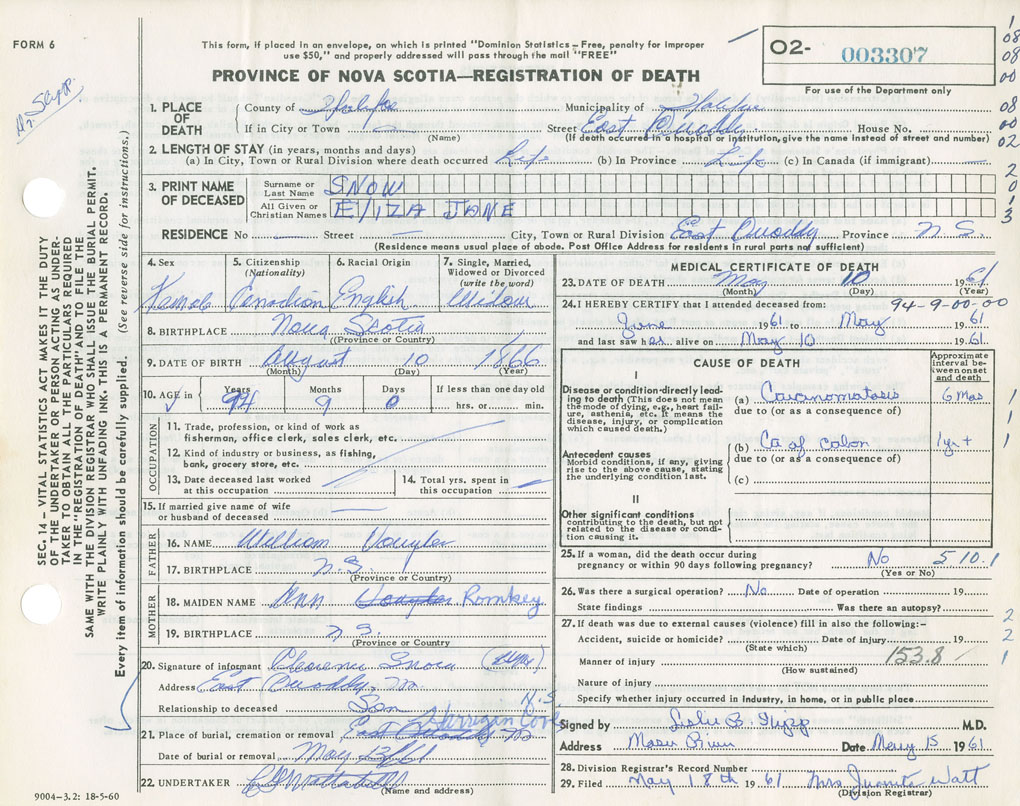 FORM 6
This form, if placed in an envelope, on which is printed "Dominion Statistics – Free, penalty for improper
use $50," and properly addressed will pass through the mail "FREE"
PROVINCE OF NOVA SCOTIA—REGISTRATION OF DEATH
O2- 003307
For use of the Department only
1 08 08 00 08 00 02 2 0 3
SEC. 14 – VITAL STATISTICS ACT MAKES IT THE DUTY
OF THE UNDERTAKER OR PERSON ACTING AS UNDER-
TAKER TO OBTAIN ALL THE PARTICULARS REQUIRED
IN THE "REGISTRATION OF DEATH" AND TO FILE THE
SAME WITH THE DIVISION REGISTRAR WHO SHALL ISSUE THE BURIAL PERMIT.
WRITE PLAINLY WITH UNFADING INK. THIS IS A PERMANENT RECORD.
Every item of information should be carefully supplied. (See reverse side for instructions.)
1. PLACE OF DEATH
County of Halifax Municipality of Halifax
If in City or Town (Name) Street East Quoddy House No.
(If death occurred in a hospital or institution, give the name instead of street and number)
2. LENGTH OF STAY (in years, months and days)
(a) In City, Town or Rural Division where death occurred Life (b) In Province Life (c) In Canada (if immigrant)
3. PRINT NAME OF DECEASED
Surname or Last Name SNOW
All Given or Christian Names ELIZA JANE
RESIDENCE No Street City, Town or Rural Division East Quoddy Province N S
(Residence means usual place of abode. Post Office Address for residents in rural parts not sufficient)
4. Sex Female
5. Citizenship (Nationality) Canadian
6. Racial Origin English
7. Single, Married, Widowed or Divorced (write the word) Widow
8. BIRTHPLACE Nova Scotia
(Province or Country)
9. DATE OF BIRTH August 10 1866
(Month) (Day) (Year)
10. AGE in Years 94 Months 9 Days 0 If less than one day old hrs. or min.
OCCUPATION
11. Trade, profession, or kind of work as
fisherman, office clerk, sales clerk, etc.
12. Kind of industry or business, as fishing,
bank, grocery store, etc.
13. Date deceased last worked at this occupation
14. Total yrs. spent in this occupation
15. If married give name of wife
or husband of deceased
FATHER
16. NAME William
17. BIRTHPLACE N.S.
(Province or Country)
MOTHER
18. MAIDEN NAME Ann Romkey
19. BIRTHPLACE N S
(Province or Country)
20. Signature of informant Clarence Snow
Address East Quoddy, N.S.
Relationship to deceased Son
21. Place of burial, cremation or removal East Quoddy Harrigan Cove
Date of burial or removal May 13/61
22. UNDERTAKER
(Name and address)
9004-3,2: 18-5-60
MEDICAL CERTIFICATE OF DEATH
23. DATE OF DEATH May 10 1961
(Month) (Day) (Year)
24. I HEREBY CERTIFY that I attended deceased from: 94-9-00-00
June 1961 to May 1961
and last saw her alive on May 10 1961
CAUSE OF DEATH
Approximate interval between onset and death
I
Disease or condition directly lead-
ing to death (This does not mean
the mode of dying, e.g., heart fail-
ure, asthenia, etc. It means the
disease, injury, or complication
which caused death.)
(a) Carcinomatosis 6 Mos 1
due to (or as a consequence of)
(b) Ca of colon 1yr + 1
Antecedent causes
Morbid conditions, if any, giving
rise to the above cause, stating
the underlying condition last.
due to (or as a consequence of)
(c)
II
Other significant conditions
contributing to the death, but not
related to the disease or condi-
tion causing it.
25. If a woman, did the death occur during
pregnancy or within 90 days following pregnancy? No 510.1
(Yes or No)
26. Was there a surgical operation? No Date of operation 19
State findings Was there an autopsy?
27. If death was due to external causes (violence) fill in also the following:-
Accident, suicide or homicide? Date of injury 19
(State which)
Manner of injury 153.8
(How sustained)
2 2 1
Nature of injury
Specify whether injury occurred in industry, in home, or in public place
Signed by Leslie B. M.D.
Address Date May 15 1961
28. Division Registrar's Record Number
29. Filed May 18th 1961 Mrs Juanita Watt
(Division Registrar)